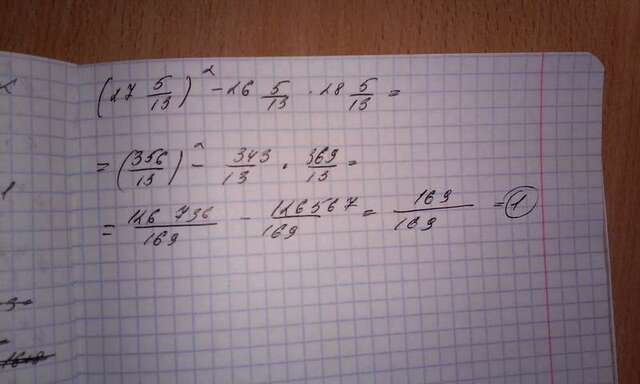 (27 5/13)² - 26 5/13 · 28 5/13 =
= (356/13)² - 343/13 · 369/13 =
= 126 736/169 - 126567/169 = 169/169 = 1